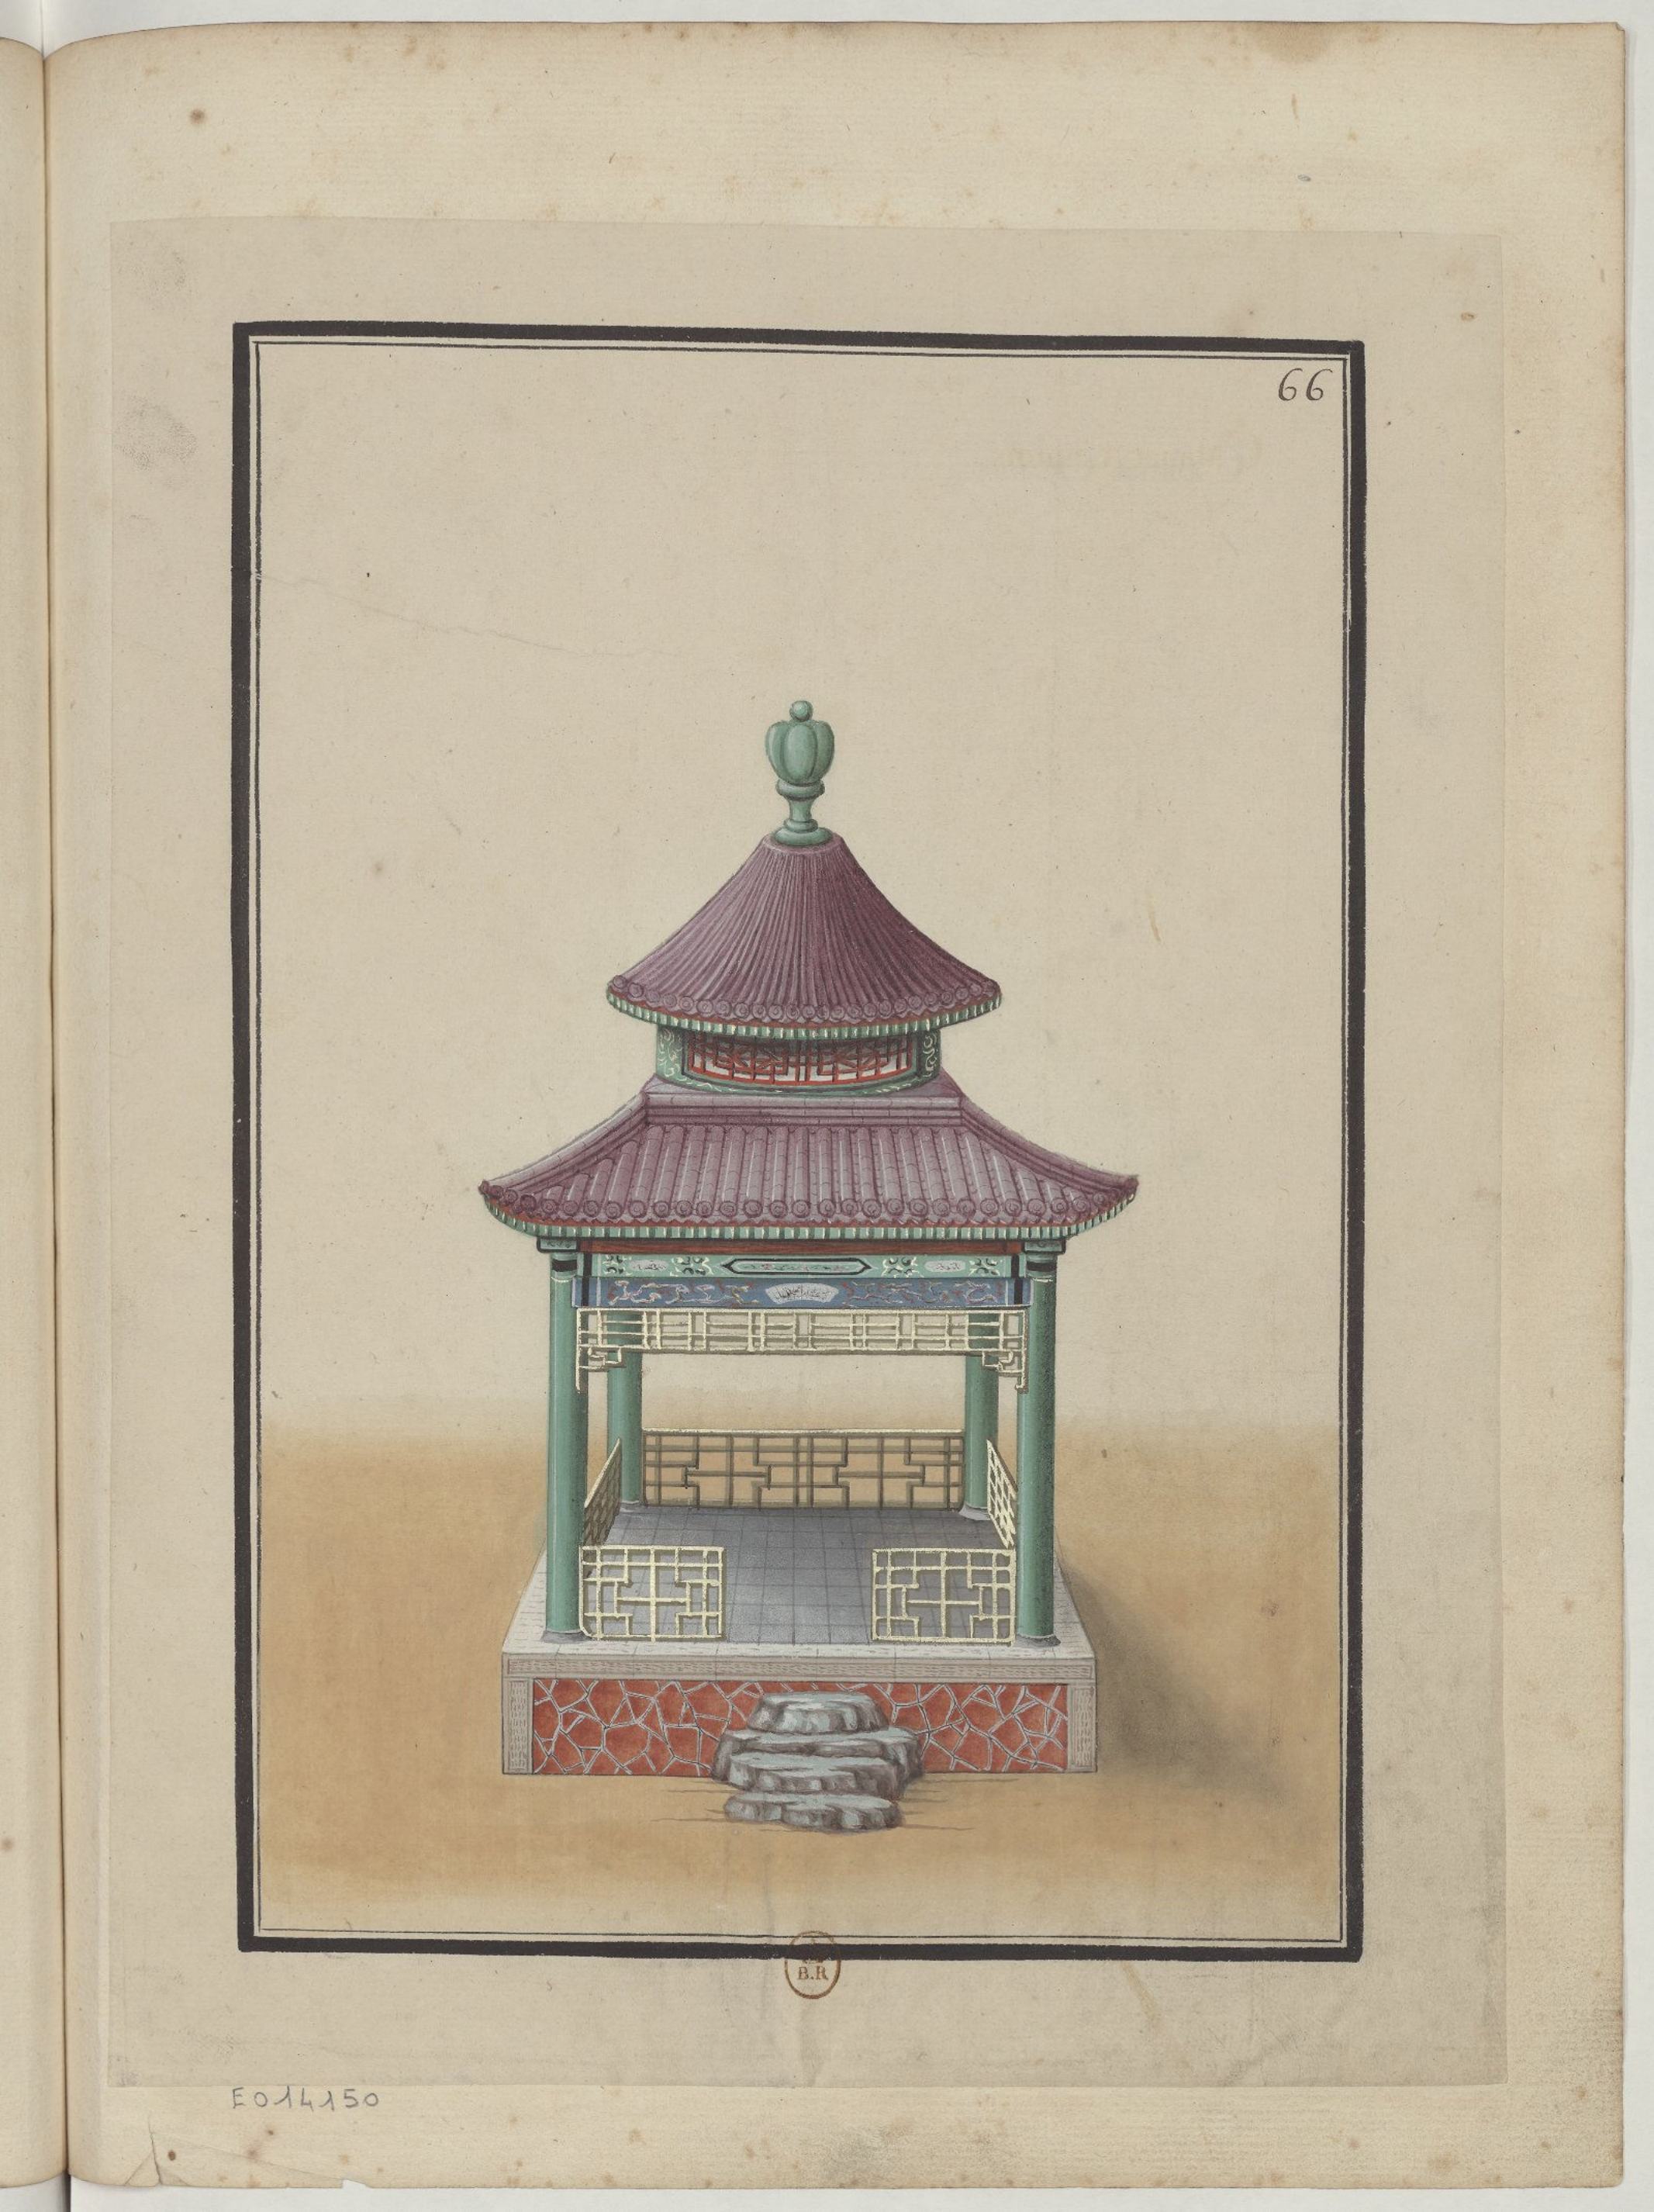 66
B.R
E014150